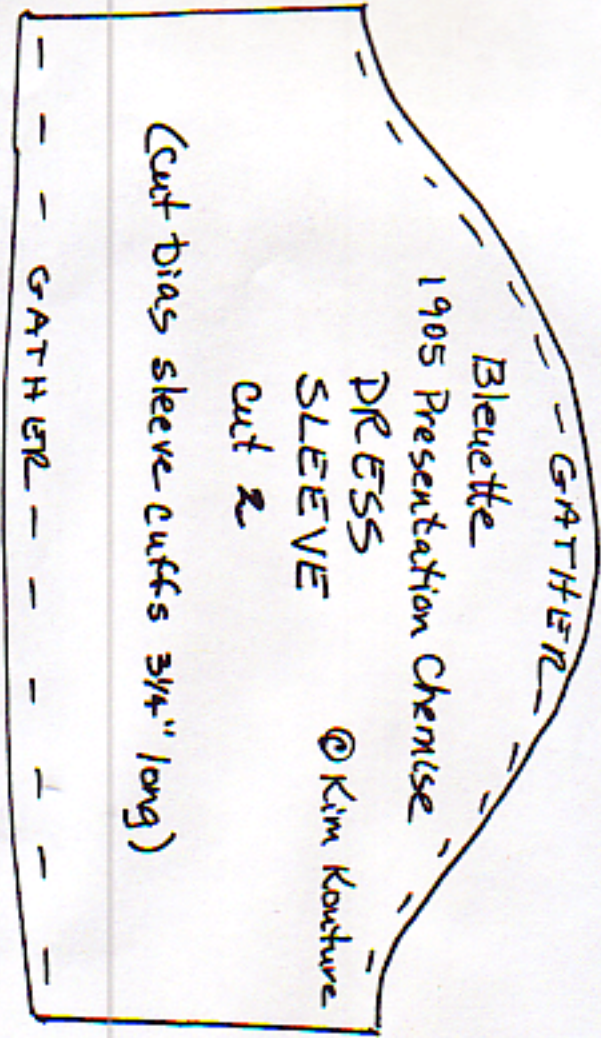 GATHER
Bleuette
1905 Presentation Chemise
DRESS
SLEEVE
Cut 2
© Kim Konture
(Cut bias sleeve cuffs 3 1/4" long)
GATHER